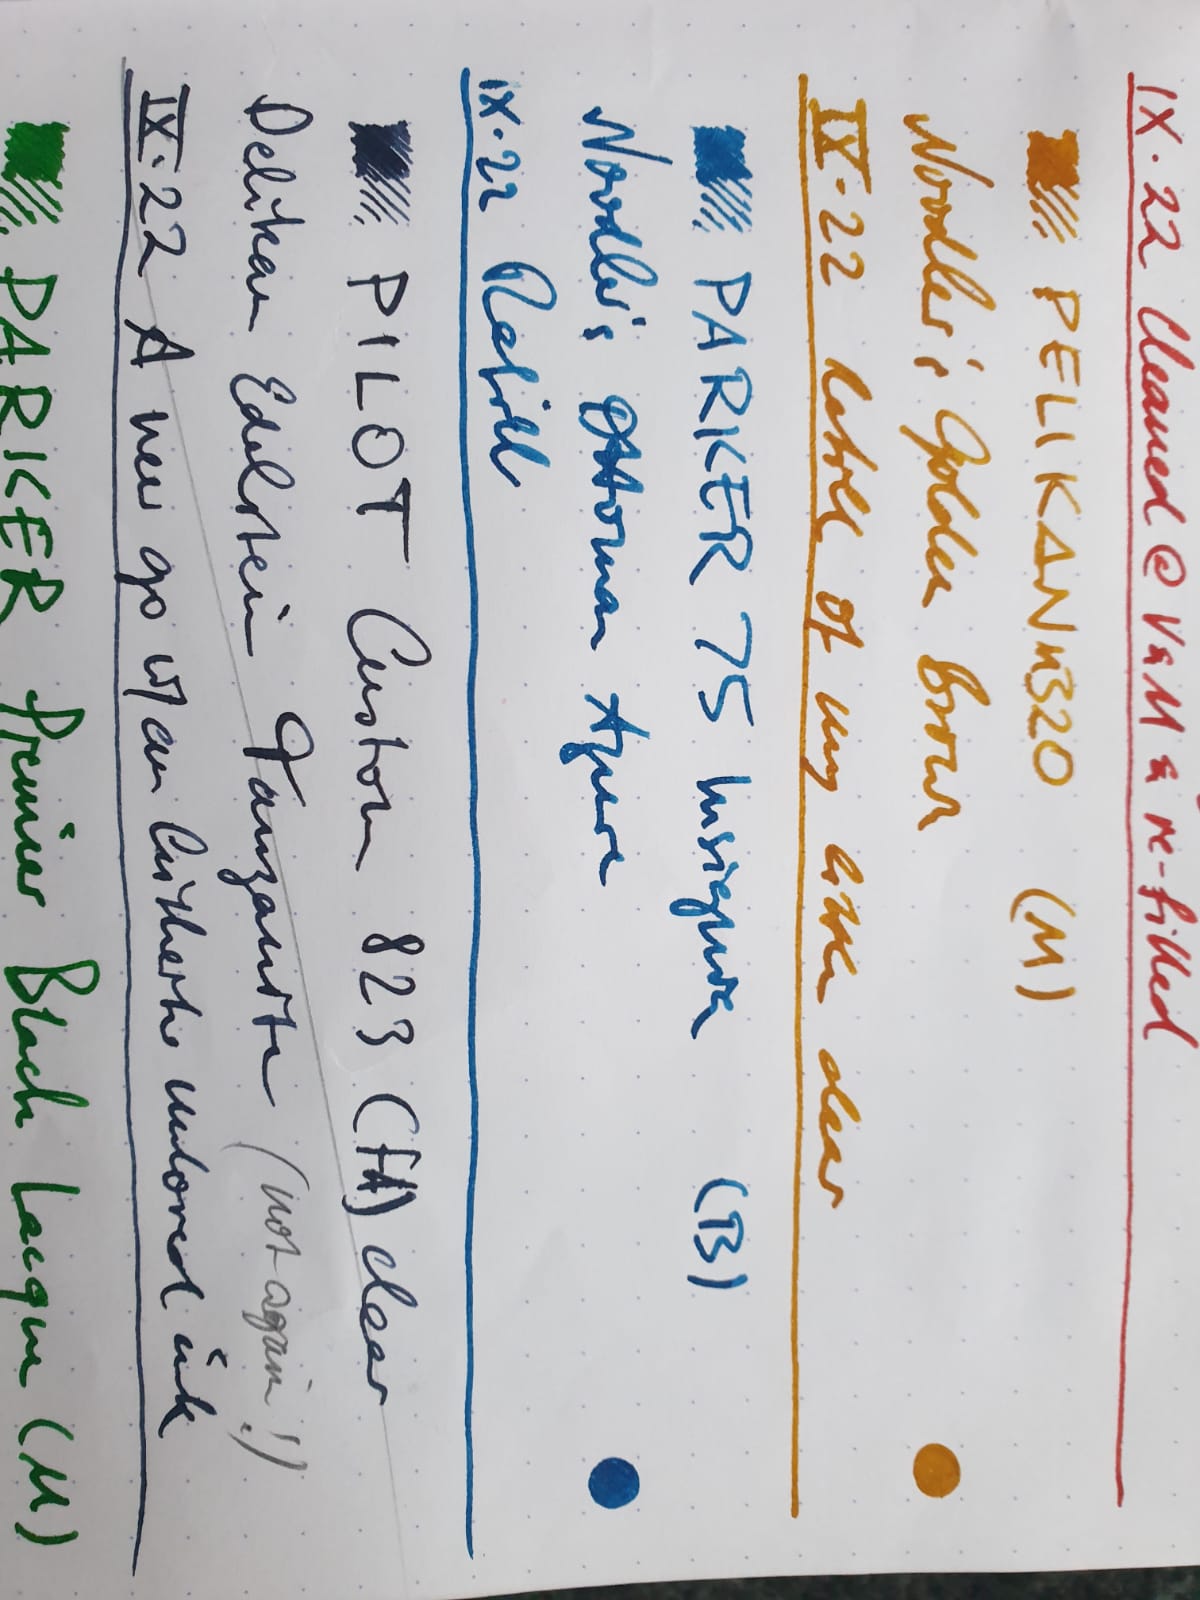 IX·22 Cleaned @ V&M & re-filled
PELIKAN M320 (M)
Noodler's Golden Brown
IX·22 Refill of my little dear
PARKER 75 Insignia (B)
Noodler's Ottoman Azure
IX·22 Refill
PILOT Custom 823 (FA) clear
Pelikan Edelstein Tanzanite (not again!)
IX·22 A new go w/ an unloved ink
PARKER Premier Black Lacque (M)